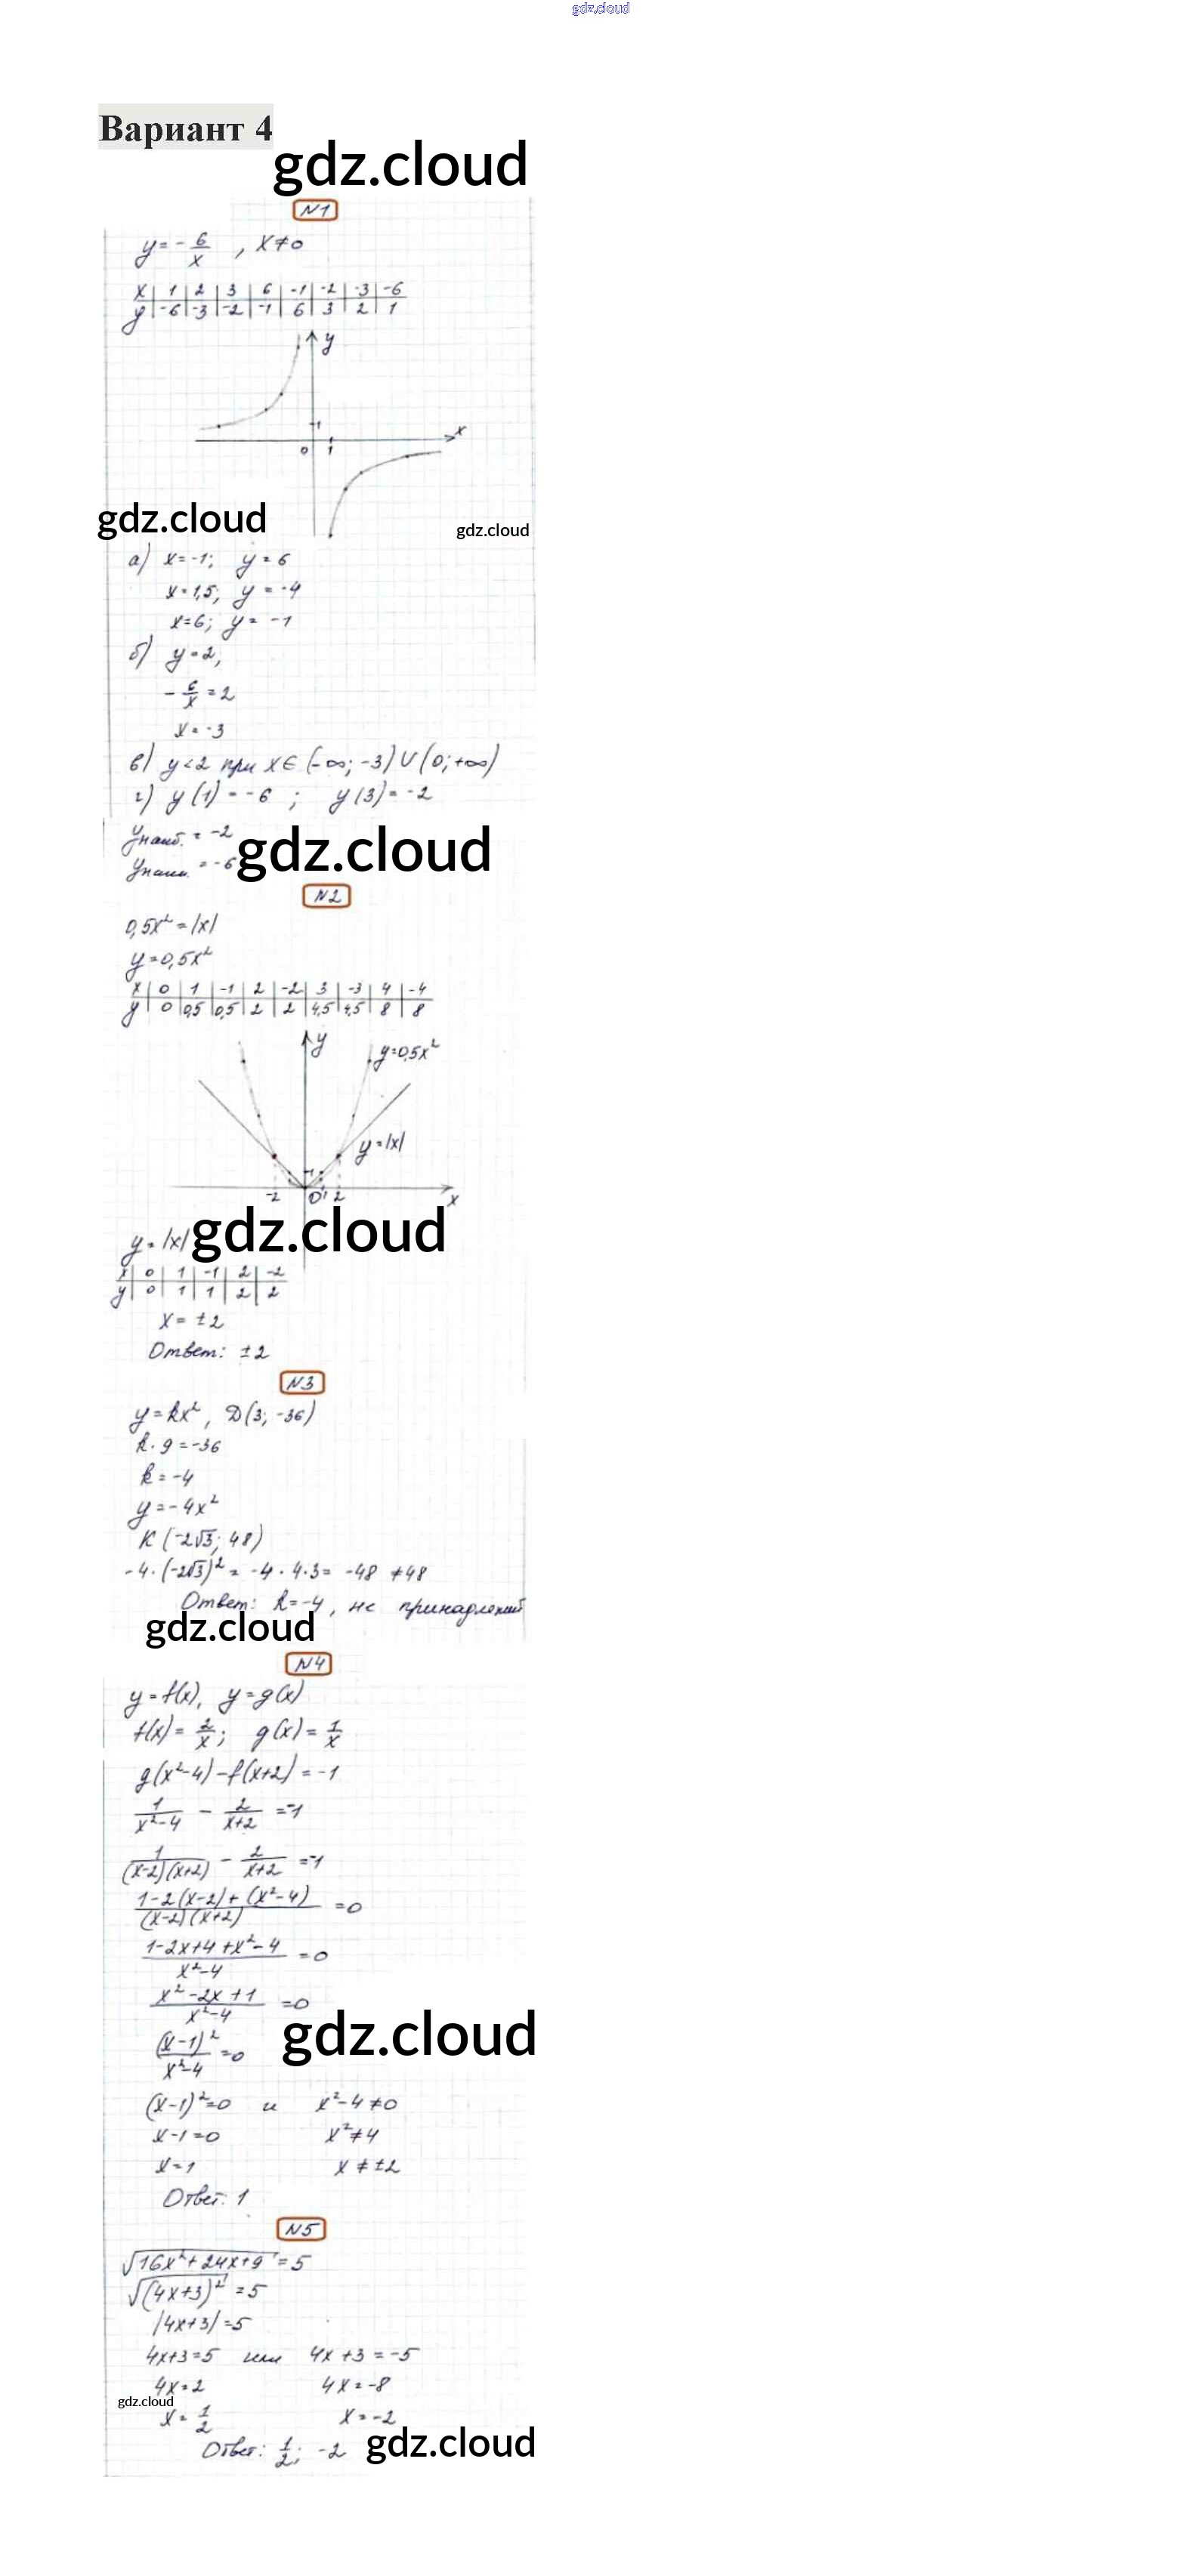 gdz.cloud
Вариант 4
gdz.cloud
N1
y = - 6/x , x ≠ 0
x | 1 | 2 | 3 | 6 | -1 | -2 | -3 | -6
y | -6 | -3 | -2 | -1 | 6 | 3 | 2 | 1
y
1
x
0 1
gdz.cloud
gdz.cloud
а) x = -1; y = 6
x = 1,5; y = -4
x = 6; y = -1
б) y = 2,
- 6/x = 2
x = -3
в) y < 2 при x ∈ (-∞; -3) ∪ (0; +∞)
г) y(1) = -6 ; y(3) = -2
yнаиб. = -2
gdz.cloud
yнаим. = -6
N2
0,5x² = |x|
y = 0,5x²
x | 0 | 1 | -1 | 2 | -2 | 3 | -3 | 4 | -4
y | 0 | 0,5 | 0,5 | 2 | 2 | 4,5 | 4,5 | 8 | 8
y
y = 0,5x²
y = |x|
1
-2 0 1 2 x
y = |x|
gdz.cloud
x | 0 | 1 | -1 | 2 | -2
y | 0 | 1 | 1 | 2 | 2
x = ±2
Ответ: ±2
N3
y = kx², D(3; -36)
k · 9 = -36
k = -4
y = -4x²
K (-2√3; 48)
-4 · (-2√3)² = -4 · 4 · 3 = -48 ≠ 48
Ответ: k = -4, не принадлежит
gdz.cloud
N4
y = f(x), y = g(x)
f(x) = 2/x; g(x) = 1/x
g(x²-4) - f(x+2) = -1
1/(x²-4) - 2/(x+2) = -1
1/((x-2)(x+2)) - 2/(x+2) = -1
(1-2(x-2)+(x²-4))/((x-2)(x+2)) = 0
(1-2x+4+x²-4)/(x²-4) = 0
(x²-2x+1)/(x²-4) = 0
gdz.cloud
(x-1)²/(x²-4) = 0
(x-1)² = 0 и x²-4 ≠ 0
x-1 = 0 x² ≠ 4
x = 1 x ≠ ±2
Ответ: 1
N5
√(16x²+24x+9) = 5
√((4x+3)²) = 5
|4x+3| = 5
4x+3 = 5 или 4x+3 = -5
4x = 2 4x = -8
gdz.cloud
x = 1/2 x = -2
Ответ: 1/2; -2
gdz.cloud